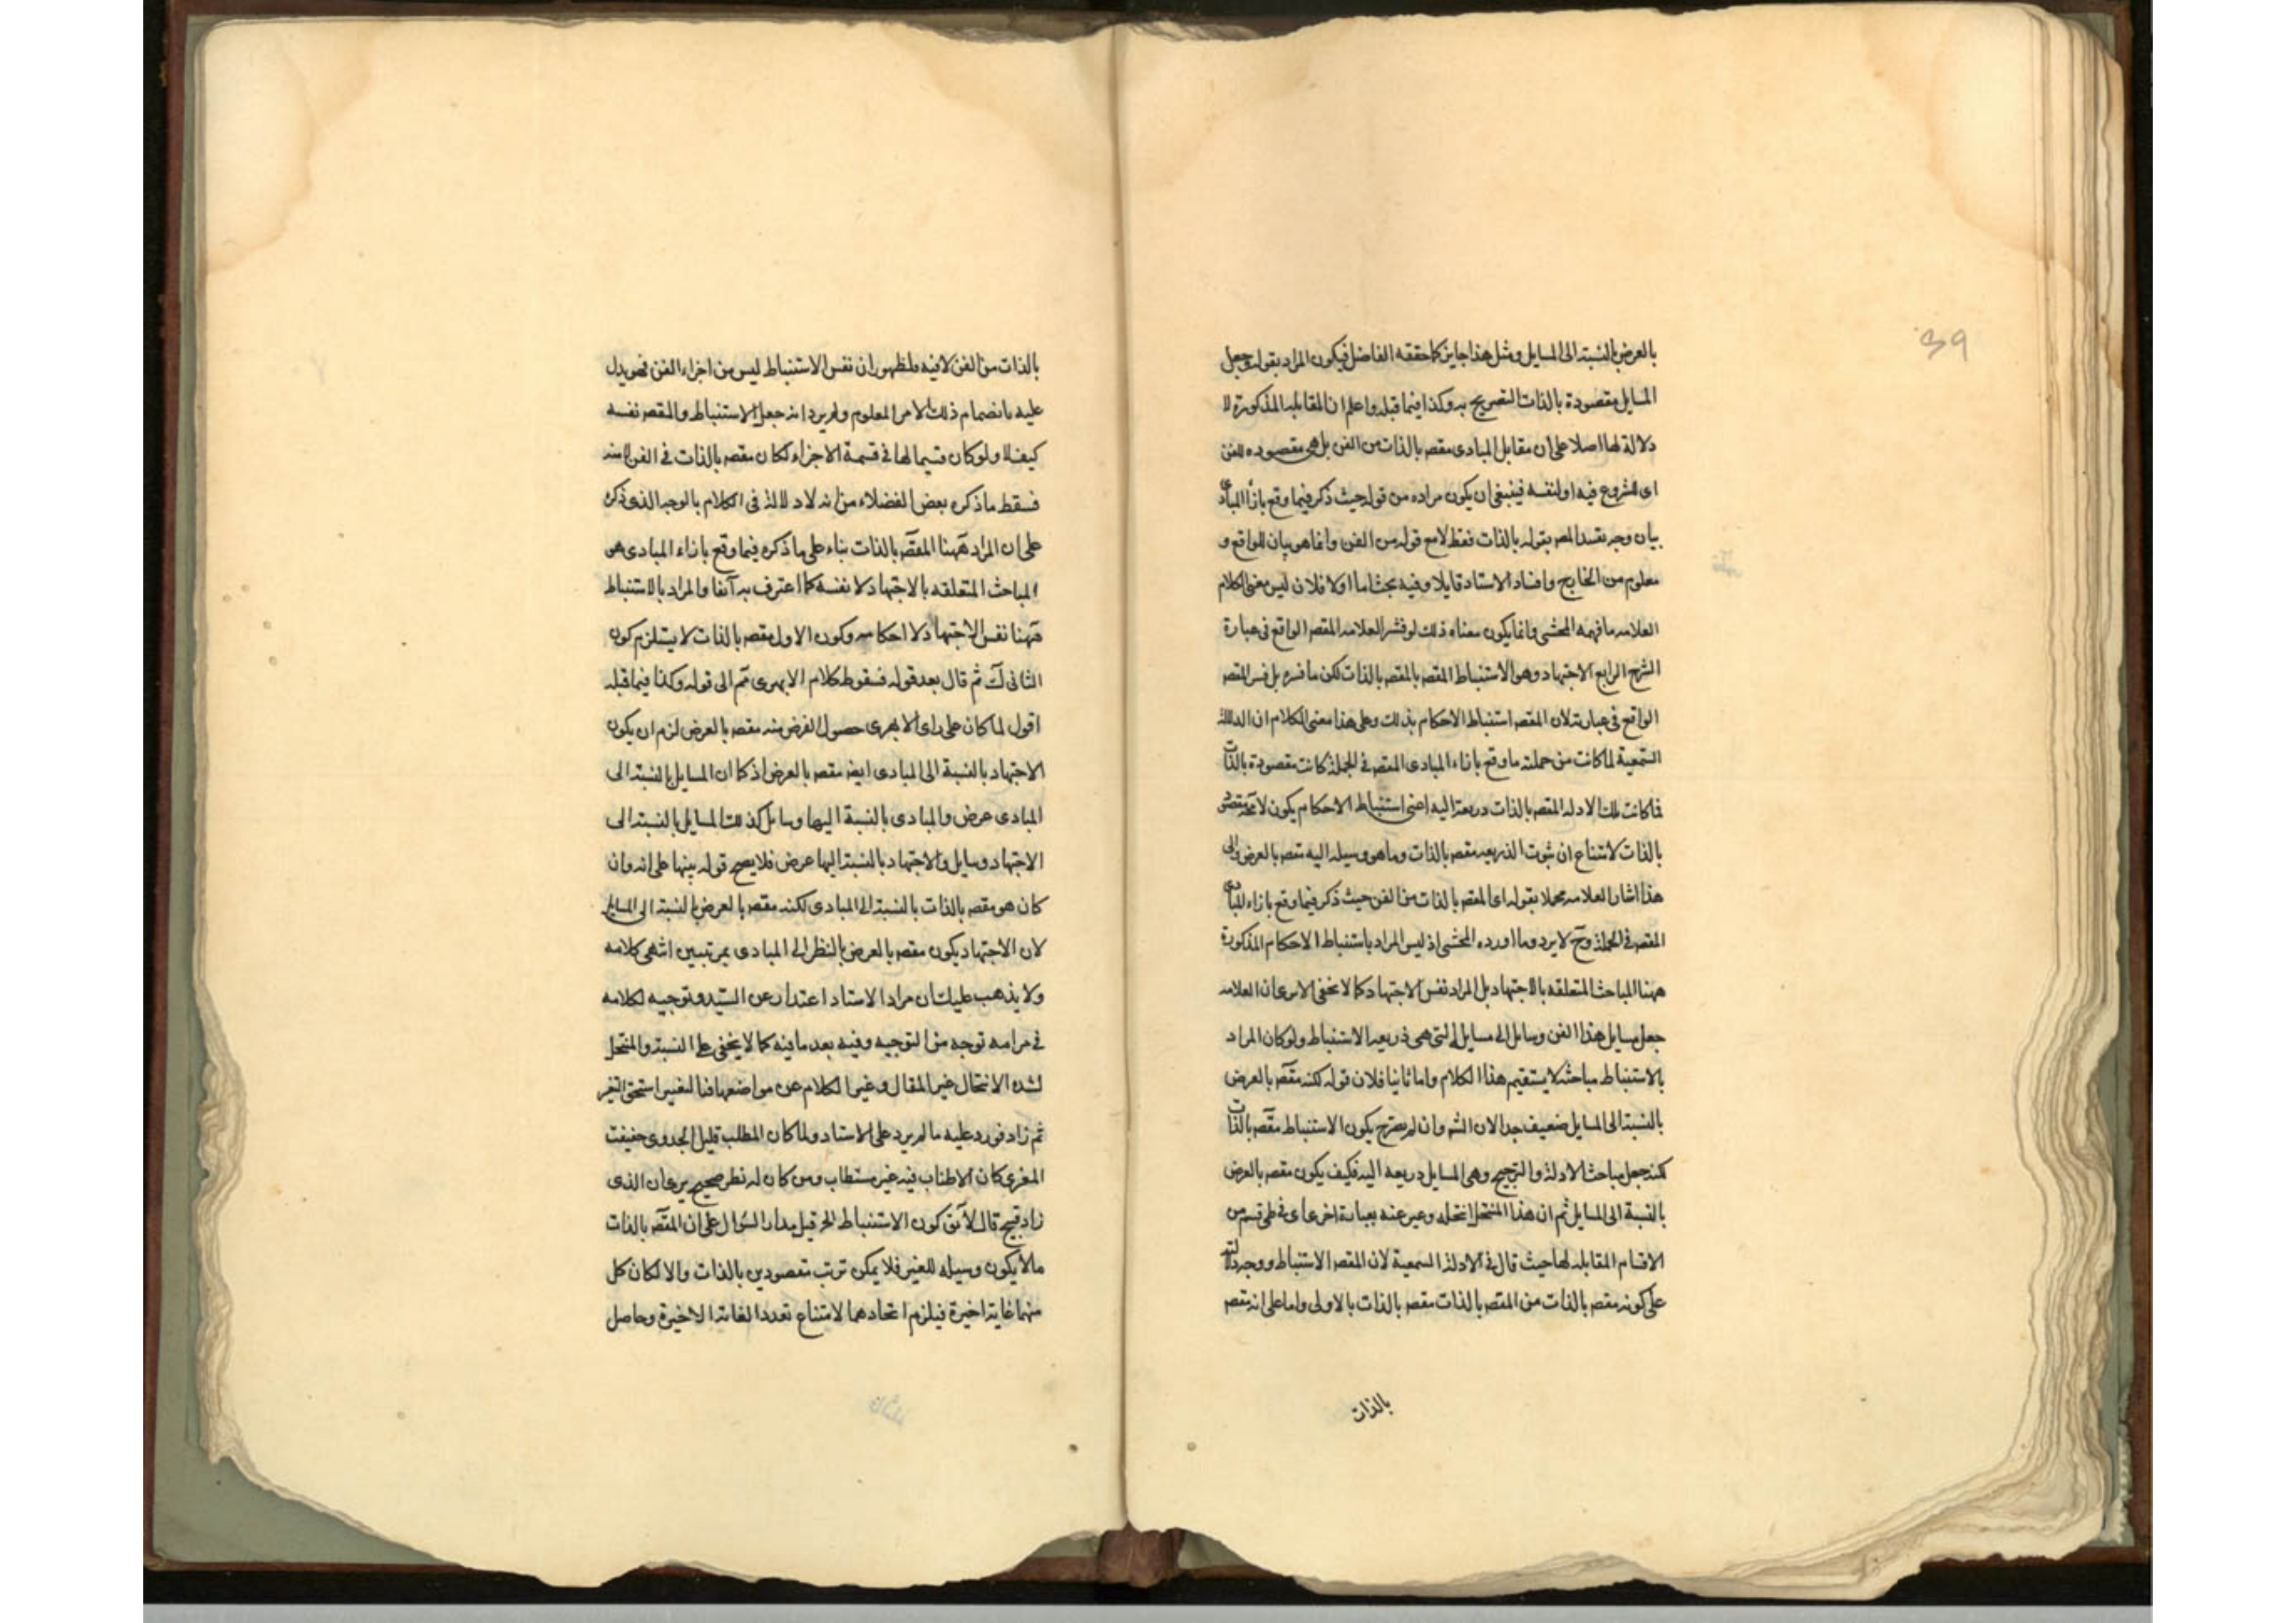 39
بالعرض بالنسبة الى المسايل ومثل هذا جايز كما حققه الفاضل فيكون المراد بقوله وجعل
المسايل مقصودة بالذات التصريح به وكذا فيما قبله واعلم ان المقابله المذكورة لا
دلالة لها اصلا على ان مقابل المبادى مقصه بالذات من الفن بل هى مقصوده للفن
اى للشروع فيه اولنفسه فينبغى ان يكون مراده من قوله حيث ذكر فيما وقع بازأ المبادى
بيان وجه تقييد المصه بقوله بالذات فقط لا مع قوله من الفن وانما هو بيان للواقع و
معلوم من الخارج وافاد الاستاد قايلا وفيه بحث اما اولا فلان ليس معنى الكلام
العلامه ما فهمه المحشى وانما يكون معناه ذلك لو فسر العلامه المقصه الواقع فى عبارة
الشرح الرابع الاجتهاد وهو الاستنباط المقصه بالمقصه بالذات لكن ما فسره بل فسر المقصه
الواقع فى عبارته لان المقصه استنباط الاحكام بذلك وعلى هذا معنى الكلام ان الدلالة
السمعية لما كانت من جملته ما وقع بازاء المبادى المقصه فى الجملة كانت مقصودة بالذات
فما كانت تلك الادله المقصه بالذات دريعة اليه اعنى استنباط الاحكام يكون لا محة مقصه
بالذات لامتناع ان ثبوت الذريعه مقصه بالذات وما هو وسيله اليه مقصه بالعرض والى
هذا اشار العلامه مجملا بقوله اى المقصه بالذات من الفن حيث ذكر فيما وقع بازاء المبادى
المقصه فى الجملة وح لا يرد وما اورده المحشى اذ ليس المراد باستنباط الاحكام المذكورة
ههنا المباحث المتعلقه بالاجتهاد بل المراد نفس الاجتهاد كما لا يخفى الا يرى ان العلامه
جعل مسايل هذا الفن وسايل الى مسايل التى هى ذريعه الاستنباط ولو كان المراد
بالاستنباط مباحثه لا يستقيم هذا الكلام واما ثانيا فلان قوله لكنه مقصه بالعرض
بالنسبة الى المسايل ضعيف جدا لان الشه وان لم يصرح يكون الاستنباط مقصه بالذات
لكنه جعل مباحث الادلة والترجيح وهى المسايل دريعه اليه فكيف يكون مقصه بالعرض
بالنسبة الى المسايل ثم ان هذا المنتحل انتحله وعبر عنه بعبارة اخرى اى فى طى قسم من
الاقسام المقابله لها حيث قال فى الادلة السمعية لان المقصه الاستنباط ووجه دلالته
على كونه مقصه بالذات من المقصه بالذات مقصه بالذات بالاولى واما على انه مقصه
بالذات
بالذات من الفن لا فيه فلظهور ان نفس الاستنباط ليس من اجزاء الفن فهو يدل
عليه بانضمام ذلك الامر المعلوم ولم يرد انه جعل الاستنباط والمقصه نفسه
كيف لا ولو كان قسيما لها فى قسمة الاجزاء لكان مقصه بالذات فى الفن لا منه
فسقط ما ذكره بعض الفضلاء من انه لا دلالة فى الكلام بالوجه الذى ذكره
على ان المراد ههنا المقصه بالذات بناء على ما ذكره فيما وقع بازاء المبادى هو
المباحث المتعلقه بالاجتهاد لا نفسه كما اعترف به آنفا والمراد بالاستنباط
ههنا نفس الاجتهاد لا احكامه وكون الاول مقصه بالذات لا يستلزم كون
الثانى ك ثم قال بعد قوله فسقوط كلام الابهرى ثم الى قوله وكذا فيما قبله
اقول لما كان على راى الابهرى حصول الغرض منه مقصه بالعرض لزم ان يكون
الاجتهاد بالنسبة الى المبادى ايضه مقصه بالعرض اذ كما ان المسايل بالنسبة الى
المبادى عرض والمبادى بالنسبة اليها وسايل كذلك المسايل بالنسبة الى
الاجتهاد وسايل والاجتهاد بالنسبة اليها عرض فلا يصح قوله بينها على انه وان
كان هو مقصه بالذات بالنسبة الى المبادى لكنه مقصه بالعرض بالنسبة الى المسايل
لان الاجتهاد يكون مقصه بالعرض بالنظر الى المبادى بمرتبتين انتهى كلامه
ولا يذهب عليك ان مراد الاستاد اعتدار عن السيد وتوجيه لكلامه
فى مرامه توجه من التوجيه وفيه بعد ما فيه كما لا يخفى على النسبة والمنتحل
لشده الانتحال غير المقال وغير الكلام عن مواضعها فنا لتغير استحق التغير
ثم زاد فورد عليه ما لم يرد على الاستاد ولما كان المطلب قليل الجدوى خفيفت
المغزى كان الاطناب فيه غير مستطاب ومن كان له نظر صحيح يرى ان الذى
زاد قبيح قال لا يق كون الاستنباط الخ قيل مدار السؤال على ان المقصه بالذات
ما لا يكون وسيله للغير فلا يمكن ترتب مقصودين بالذات والا لكان كل
منهما غاية اخيرة فيلزم اتحادهما لامتناع تعدد الغاية الاخيرة وحاصل